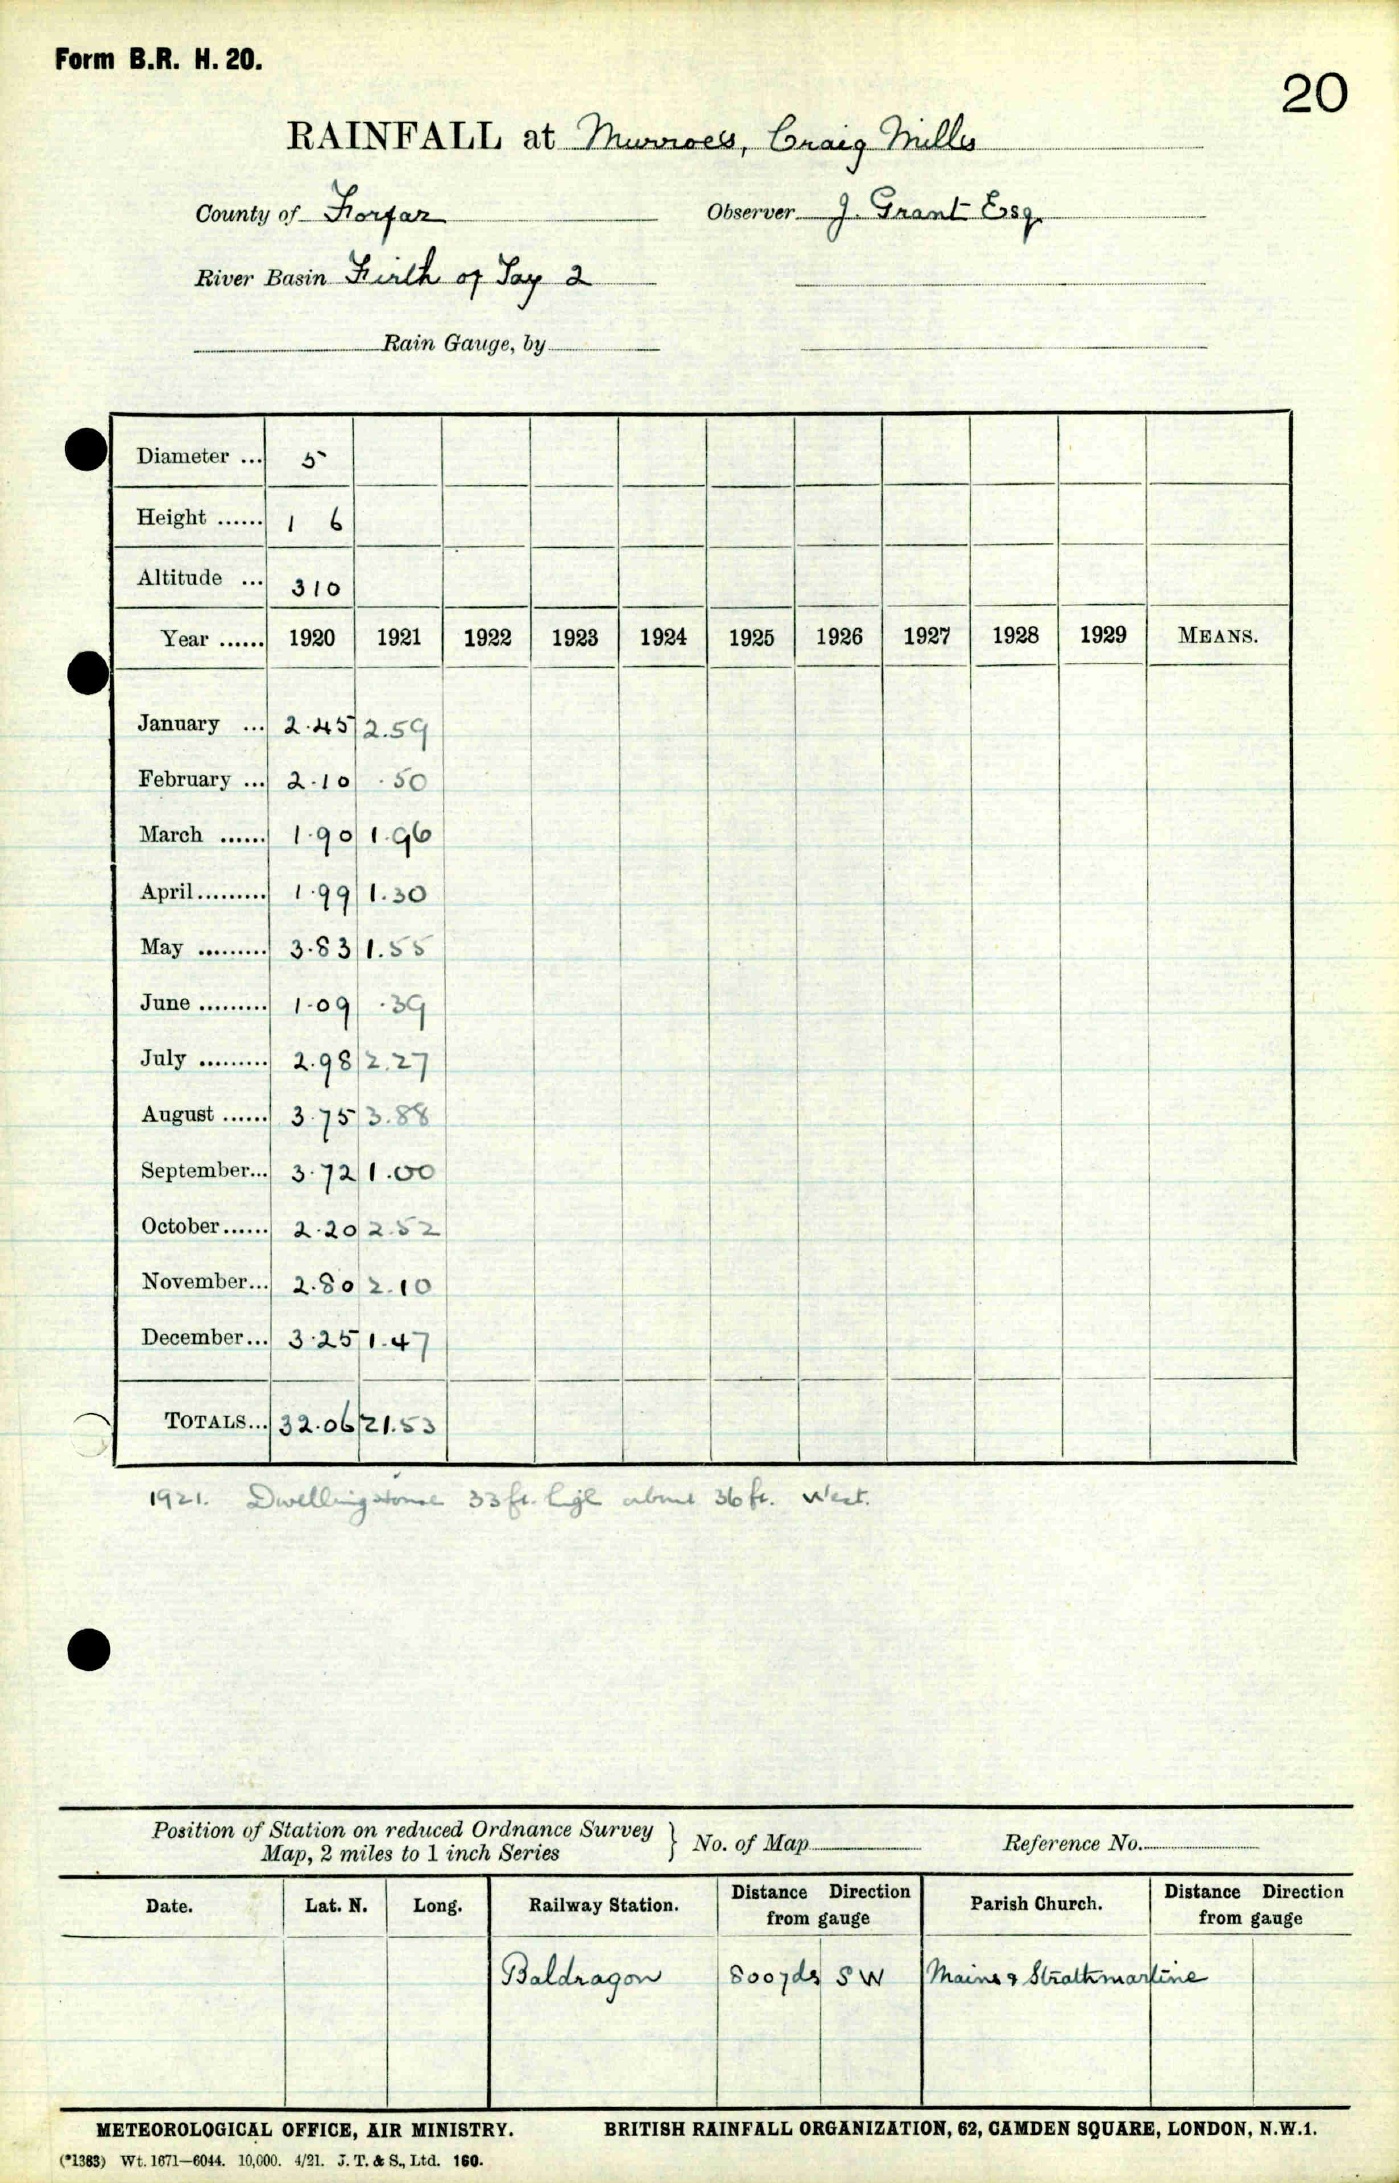 Form B.R. H. 20.
20
RAINFALL at Murroes, Craig Mills
County of Forfar Observer J. Grant Esq.
River Basin Firth of Tay 2
Rain Gauge, by
Diameter ... 5
Height ...... 1 6
Altitude ... 310
Year ...... 1920 1921 1922 1923 1924 1925 1926 1927 1928 1929 MEANS.
January ... 2.45 2.59
February ... 2.10 .50
March ...... 1.90 1.96
April......... 1.99 1.30
May ......... 3.83 1.55
June ......... 1.09 .39
July ......... 2.98 2.27
August ...... 3.75 3.88
September... 3.72 1.00
October...... 2.20 2.52
November... 2.80 2.10
December... 3.25 1.47
TOTALS... 32.06 21.53
1921. Dwelling House 33 ft. high about 36 ft. West.
Position of Station on reduced Ordnance Survey } No. of Map Reference No.
Map, 2 miles to 1 inch Series
Date. Lat. N. Long. Railway Station. Distance Direction from gauge Parish Church. Distance Direction from gauge
Baldragon 800 yds SW Mains & Strathmartine
METEOROLOGICAL OFFICE, AIR MINISTRY. BRITISH RAINFALL ORGANIZATION, 62, CAMDEN SQUARE, LONDON, N.W.1.
(*1383) Wt. 1671—6044. 10,000. 4/21. J. T. & S., Ltd. 160.